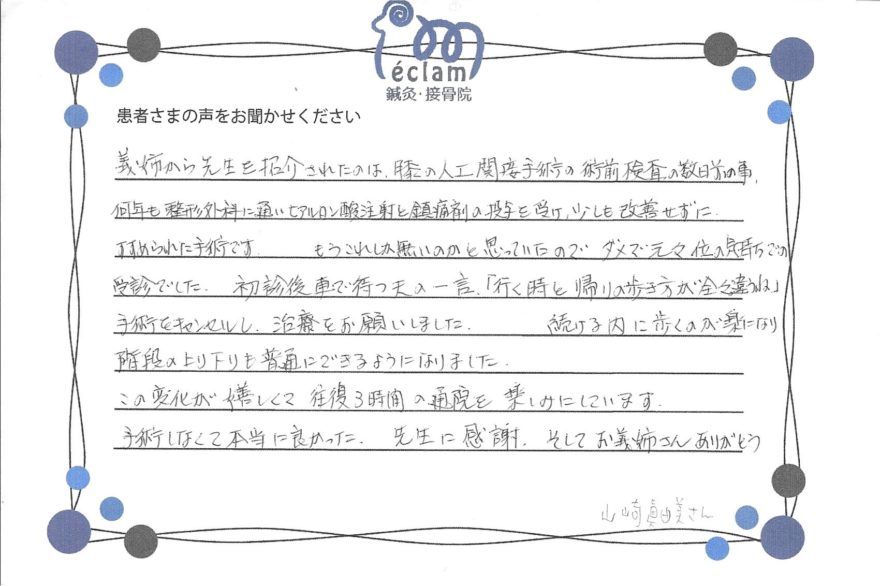 éclam
鍼灸・接骨院
患者さまの声をお聞かせください
義姉から先生を招介されたのは、膝の人工関接手術の術前検査の数日前の事、
何年も整形外科に通いヒアルロン酸注射と鎮痛剤の投与を受け、少しも改善せずに、
すすめられた手術です。 もうこれしか無いのかと思っていたので ダメで元々位の気持ちでの
受診でした。 初診後車で待つ夫の一言、「行く時と帰りの歩き方が全々違うね」
手術をキャンセルし、治療をお願いしました。 続ける内に歩くのが楽になり
階段の上り下りも普通にできるようになりました。
この変化が嬉しくて往復3時間の通院を楽しみにしています。
手術しなくて本当に良かった。 先生に感謝、そしてお義姉さんありがとう
山崎真由美さん